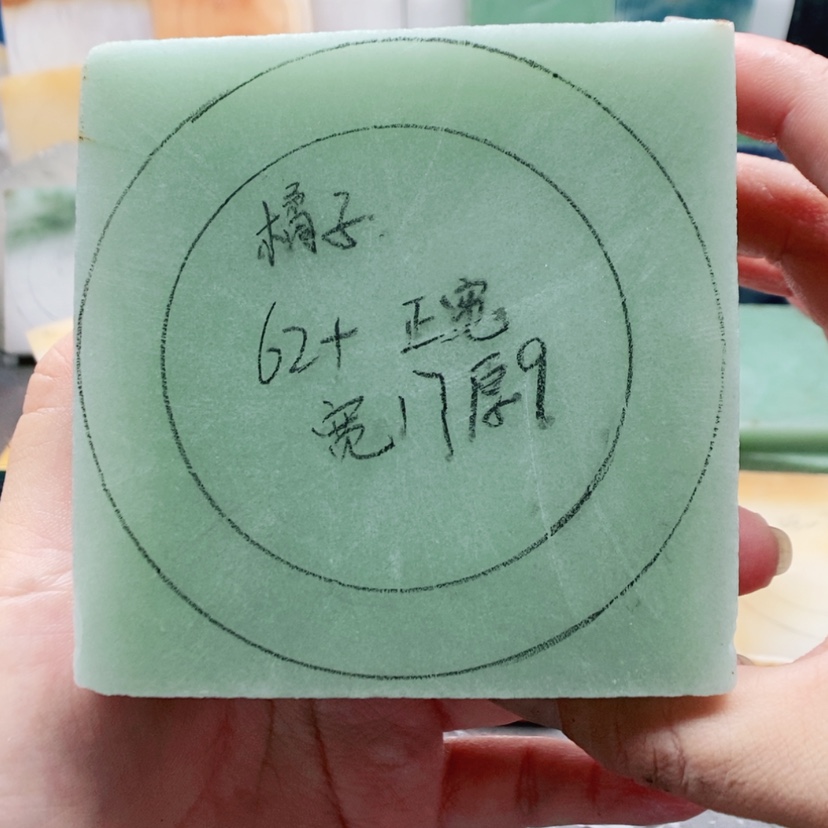 橘子
62+ 正宽
宽17厚9